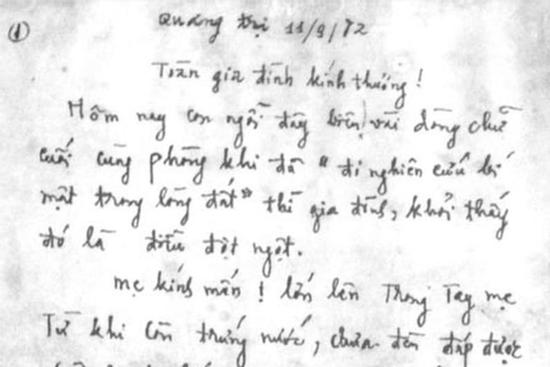 ①
Quảng trị 11/9/72
Toàn gia đình kính thương!
Hôm nay con ngồi đây biên vài dòng chữ
cuối cùng phòng khi đã "đi nghiên cứu bí
mật trong lòng đất" thì gia đình, khỏi thấy
đó là điều đột ngột.
mẹ kính mến! lớn lên Trong Tay mẹ
Từ khi còn trứng nước, chưa đền đáp được